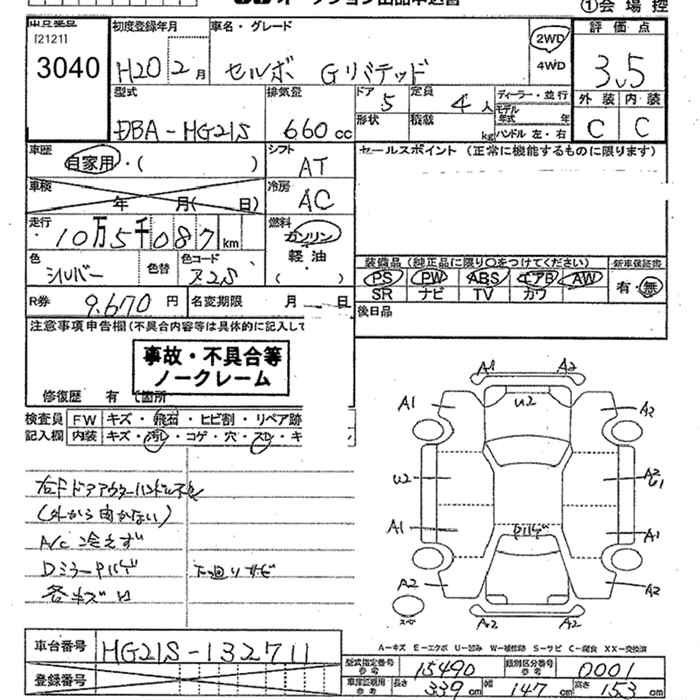 オークション出品申込書
①会場控
[2121]
3040
初度登録年月
H20 2月
車名・グレード
セルボ Gリミテッド
2WD
4WD
評価点
3.5
外装 内装
C C
型式
DBA-HG21S
排気量
660cc
ドア 5
定員 4人
形状
積載 kg
ディーラー・並行
モデル年式 年
ハンドル 左・右
車歴
自家用・( )
シフト
AT
セールスポイント (正常に機能するものに限ります)
車検
年 月( 日)
冷房
AC
走行
10万5千087km
燃料
ガソリン
軽油
( )
色
シルバー
色替
色コード
Z2S
装備品(純正品に限り○をつけてください)
PS PW ABS エアB AW
SR ナビ TV カワ
新車保証書
有・無
R券 9,670円
名変期限 月 日
後日品
注意事項申告欄(不具合内容等は具体的に記入して
事故・不具合等
ノークレーム
修復歴 有 (箇所
検査員 FW キズ・飛石・ヒビ割・リペア跡
記入欄 内装 キズ・汚レ・コゲ・穴・スレ・キ
右FドアアウターハンドL不良
(外から開かない)
A/C 冷えず
Dミラーハゲ 下廻りサビ
各キズ凹
A1 A2
U2
A1 A2
U2 A2 U1
A1 A1
ハゲ
A2 A2
スペア
A2 A2
A-キズ E-エクボ U-凹み W-補修跡 S-サビ C-腐食 XX-交換済
車台番号 HG21S-132711
登録番号
型式指定番号 参考 15490
類別区分番号 参考 0001
車庫証明用 参考 長さ 339cm 幅 147cm 高さ 153cm